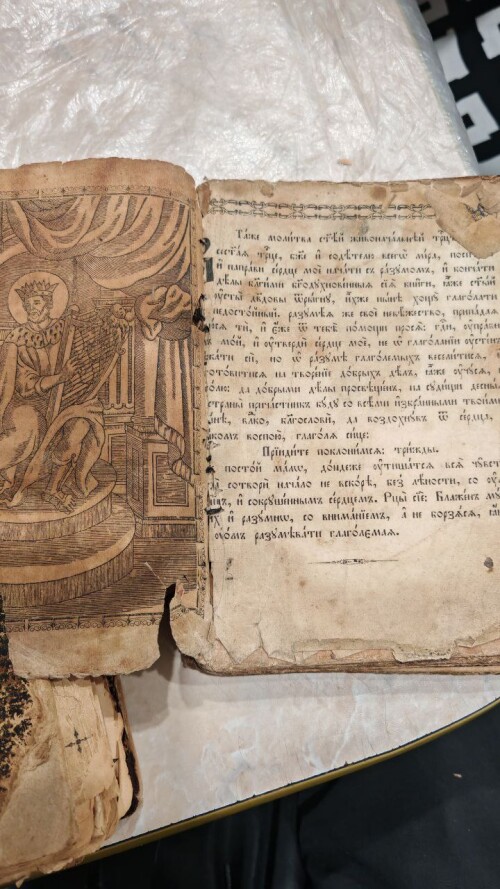 Та́же моли́тва ст҃ѣ́й живонача́льнѣй трⷪ҇
сест҃а́ѧ трⷪ҇це, бж҃е и҆ содѣ́телю всегѡ̀ мі́ра,
и҆ напра́ви се́рдце моѐ нача́ти съ ра́зумомъ, и҆ конча́ти
дѣлы̀ бл҃ги́ми бг҃одꙋхнове́нныѧ сїѧ̑ кни̑ги, ꙗ҆̀же ст҃ы́й
ᲂу҆сты̑ дв҃довы ѿры́гнꙋ, и҆́хже ны́нѣ хощꙋ̀ глаго́лати
недосто́йный. разꙋмѣ́ѧ же своѐ невѣ́жество, припа́даѧ
тѝ, и҆ є҆́же ѿ тебє̀ по́мощи просѧ̀: гдⷭ҇и, ᲂу҆пра́ви
мо́й, и҆ ᲂу҆твердѝ се́рдце моѐ, не ѡ҆ глаго́ланїи
сѝ, но ѡ҆ ра́зꙋмѣ глаго́лемыхъ весели́тисѧ,
на творе́нїе до́брыхъ дѣ́лъ, ꙗ҆̀же ᲂу҆чꙋ́сѧ,
да до́брыми дѣ́лы просвѣще́нъ, на сꙋди́щи десны́ѧ
страны̀ прича́стникъ бꙋ́дꙋ со всѣ́ми и҆збра́нными твои́ми
влⷣко, благословѝ, да воздохнꙋ́въ ѿ се́рдца,
воспою̀, глаго́лѧ си́це:
Прїиди́те поклони́мсѧ: три́жды.
посто́й ма́лѡ, до́ндеже ᲂу҆тиша́тсѧ всѧ̑ чꙋ̑вства
сотворѝ нача́ло не вско́рѣ, без̾ лѣ́ности, со
и҆ сокрꙋше́ннымъ се́рдцемъ. Рцы̀ сїѐ: Блаже́нъ мꙋ́жъ
и҆ разꙋ́мнѡ, со внима́нїемъ, а҆ не борзѧ́сѧ, ꙗ҆́коже
разꙋмѣва́ти глаго́лемаѧ.